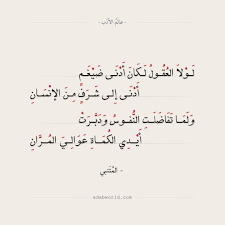 - عالم الأدب -
لَوْلاَ العُقُولُ لَكَانَ أَدْنَى ضَيْغَمٍ
أَدْنَى إِلى شَرَفٍ مِنَ الإِنْسَانِ
وَلَمَا تَفَاضَلَتِ النُّفُوسُ وَدَبَّرَتْ
أَيْدِي الكُمَاةِ عَوَالِيَ المُرَّانِ
- المُتَنَبي
adabworld.com